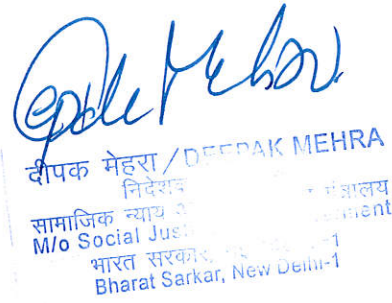 दीपक मेहरा / DEEPAK MEHRA
निदेशक
सामाजिक न्याय
M/o Social Jus
भारत सरकार,
Bharat Sarkar, New Delhi-1